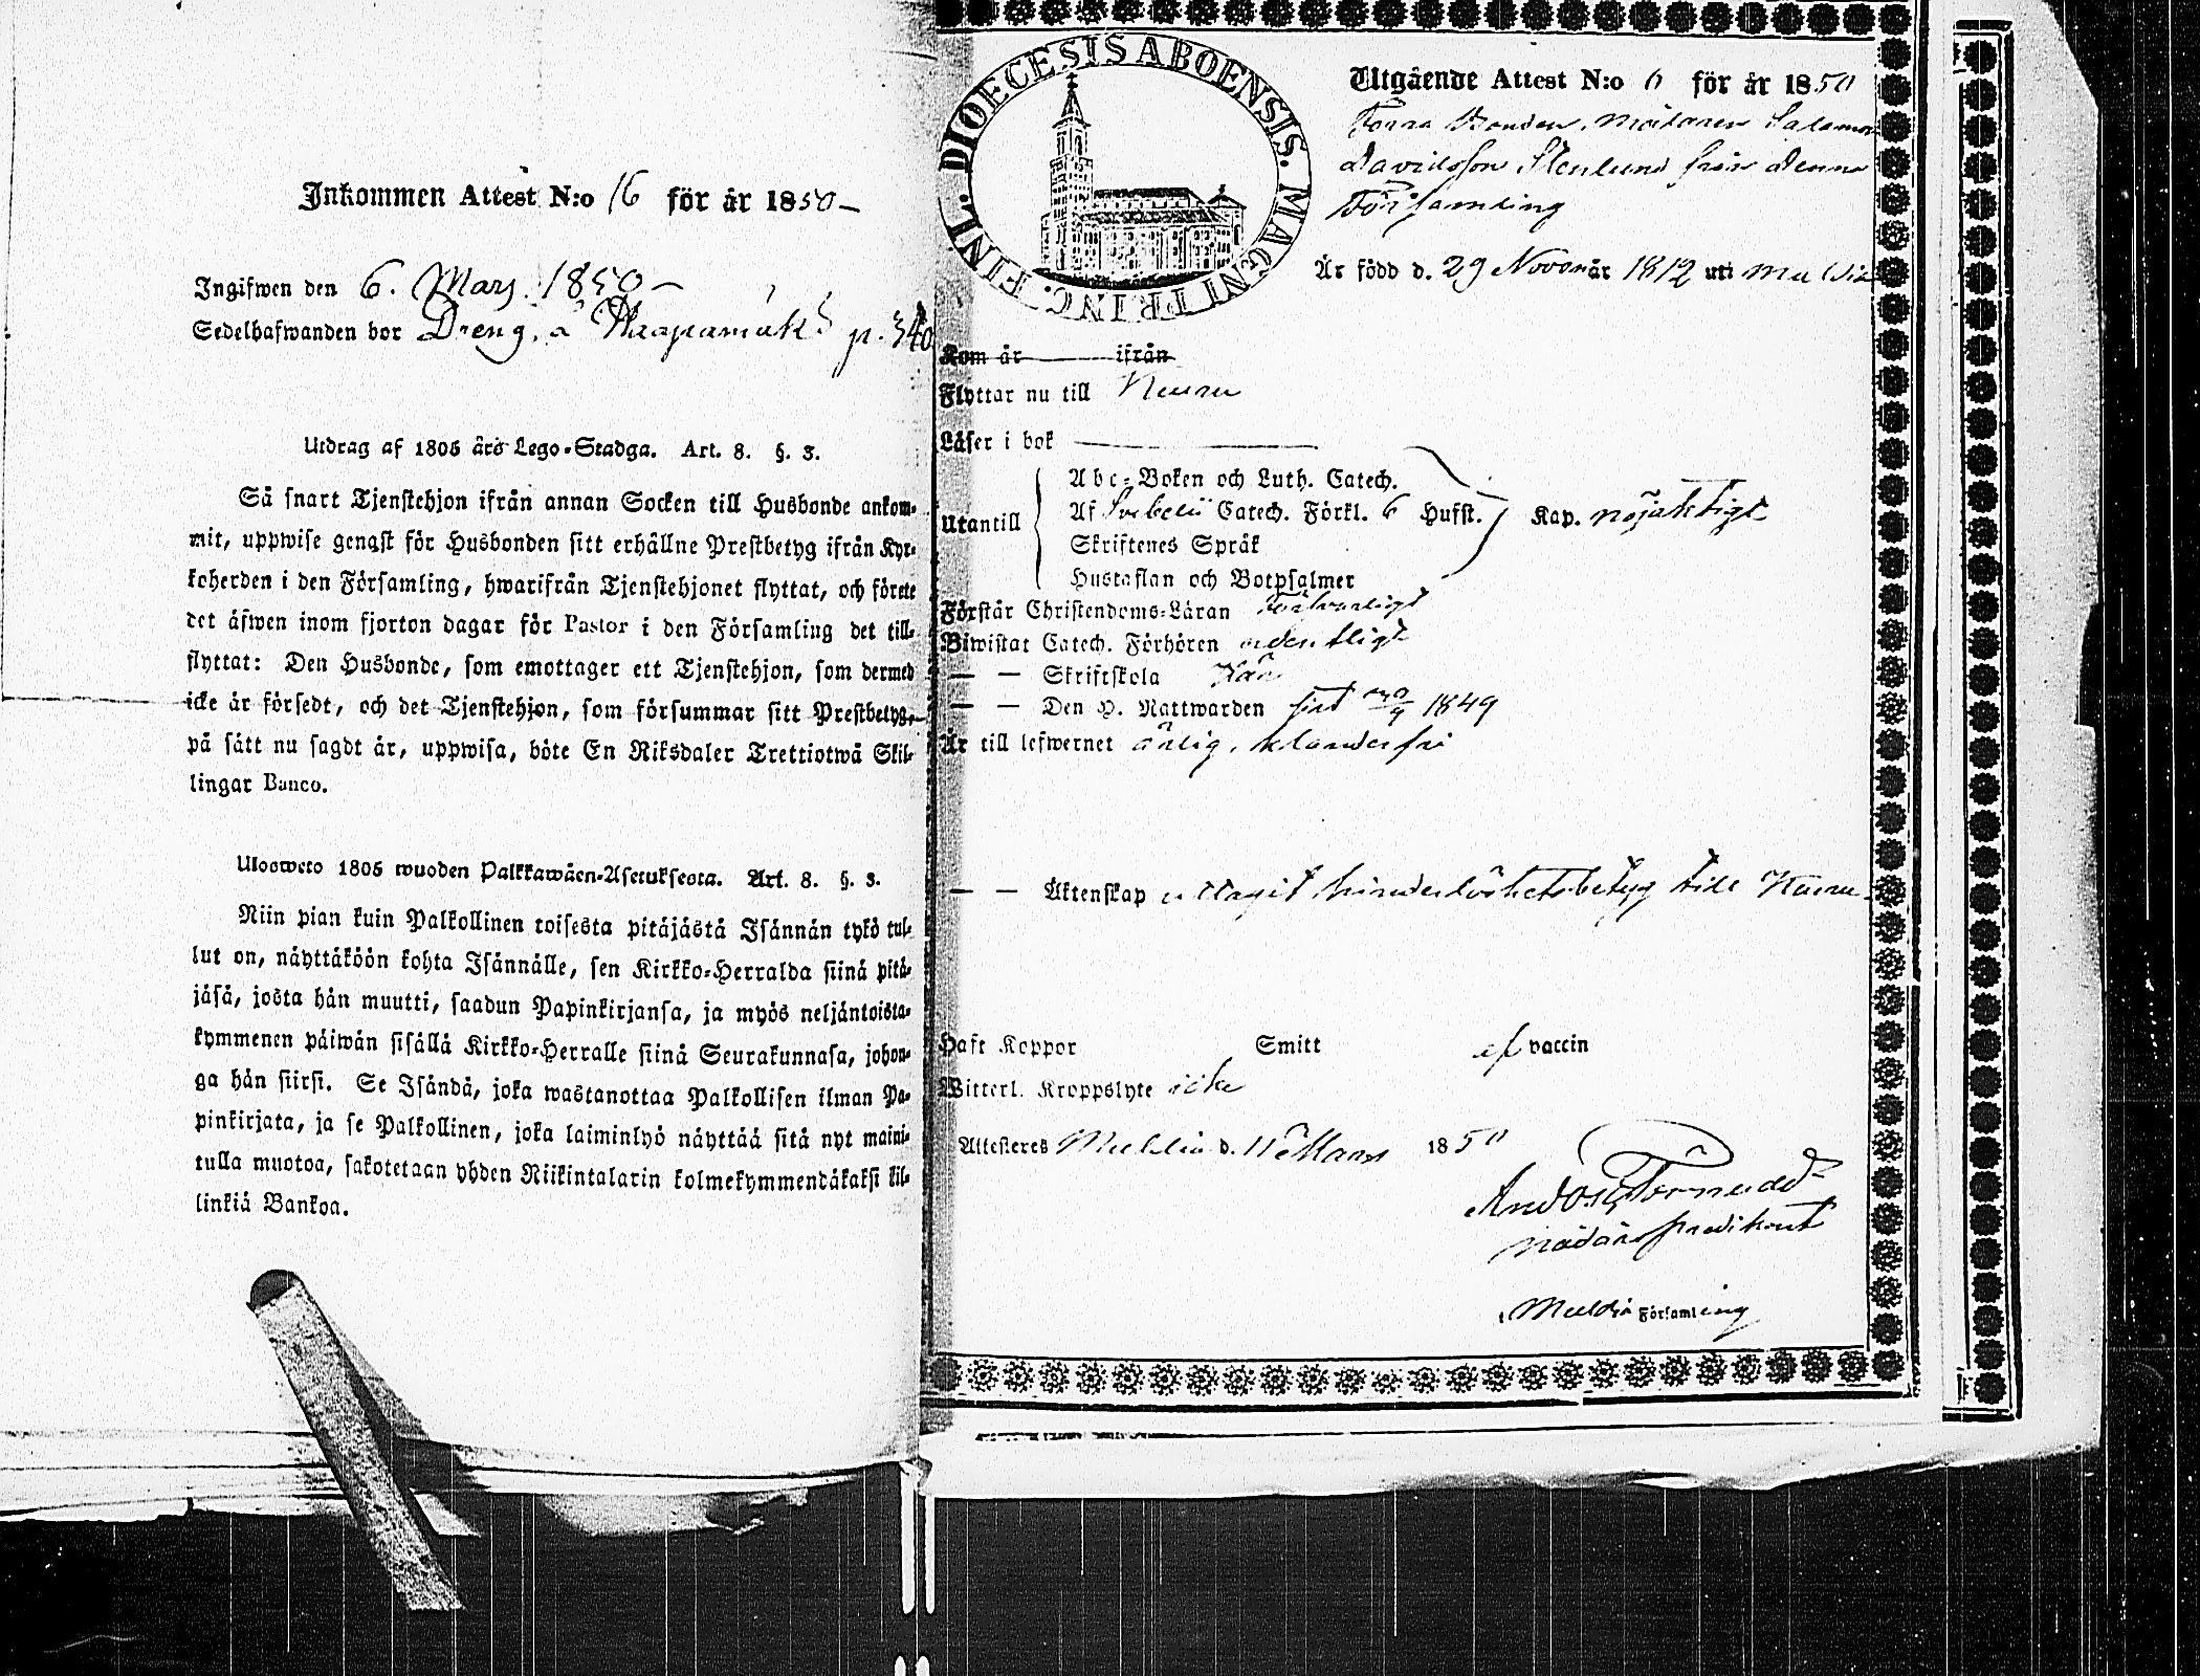 Inkommen Attest N:o 16 för år 1850 –
Ingifwen den 6. Mars 1850 –
Sedelhafwanden bor Dreng. å Haapamäki p. 340
Utdrag af 1805 års Lego-Stadga. Art. 8. §. 3.
Så snart Tjenstehjon ifrån annan Socken till Husbonde ankom-
mit, uppwise genast för Husbonden sitt erhållne Prestbetyg ifrån Kyr-
koherden i den Församling, hwarifrån Tjenstehjonet flyttat, och förete
det äfwen inom fjorton dagar för Pastor i den Församling det till-
flyttat: Den Husbonde, som emottager ett Tjenstehjon, som dermed
icke är försedt, och det Tjenstehjon, som försummar sitt Prestbetyg,
på sätt nu sagdt är, uppwisa, böte En Riksdaler Trettiotwå Skil-
lingar Banco.
Ulosweto 1805 wuoden Palkkawäen-Asetuksesta. Art. 8. §. 3.
Niin pian kuin Palkollinen toisesta pitäjästä Isännän tykö tul-
lut on, näyttäköön kohta Isännälle, sen Kirkko-Herralda siinä pitä-
jäsä, josta hän muutti, saadun Papinkirjansa, ja myös neljäntoista-
kymmenen päiwän sisällä Kirkko-Herralle siinä Seurakunnasa, johon-
ga hän siirsi. Se Isändä, joka wastanottaa Palkollisen ilman Pa-
pinkirjata, ja se Palkollinen, joka laiminlyö näyttää sitä nyt maini-
tulla muotoa, sakotetaan yhden Riikintalarin kolmekymmendäkaksi kil-
linkiä Bankoa.
DIOECESIS ABOENSIS. MAGNI PRINC. FINL.
Utgående Attest N:o 6 för år 1850
Forra Bonden, Målaren Salomon
Davidsson Stenlund från denna
Församling
Är född d. 29 Novemb år 1812 uti Muldia
Kom år ifrån
Flyttar nu till Keuru
Läser i bok
Utantill
Abc-Boken och Luth. Catech.
Af Svebelii Catech. Förkl. 6 Hufst. Kap. nöjaktigt
Skriftenes Språk
Hustaflan och Botpsalmer
Förstår Christendoms-Läran
Biwistat Catech. Förhören ordentligt
— — Skriftskola
— — Den H. Nattwarden sist 1849
Är till lefwernet ärlig, klanderfri
— — Äktenskap uttagit hinderlöshetsbetyg till Keuru
Haft Koppor Smitt af vaccin
Witterl. Kroppslyte icke
Attesteres Muldia d. 11 Mars 1850
Törnudd
nådårspredikant
i Muldia Församling